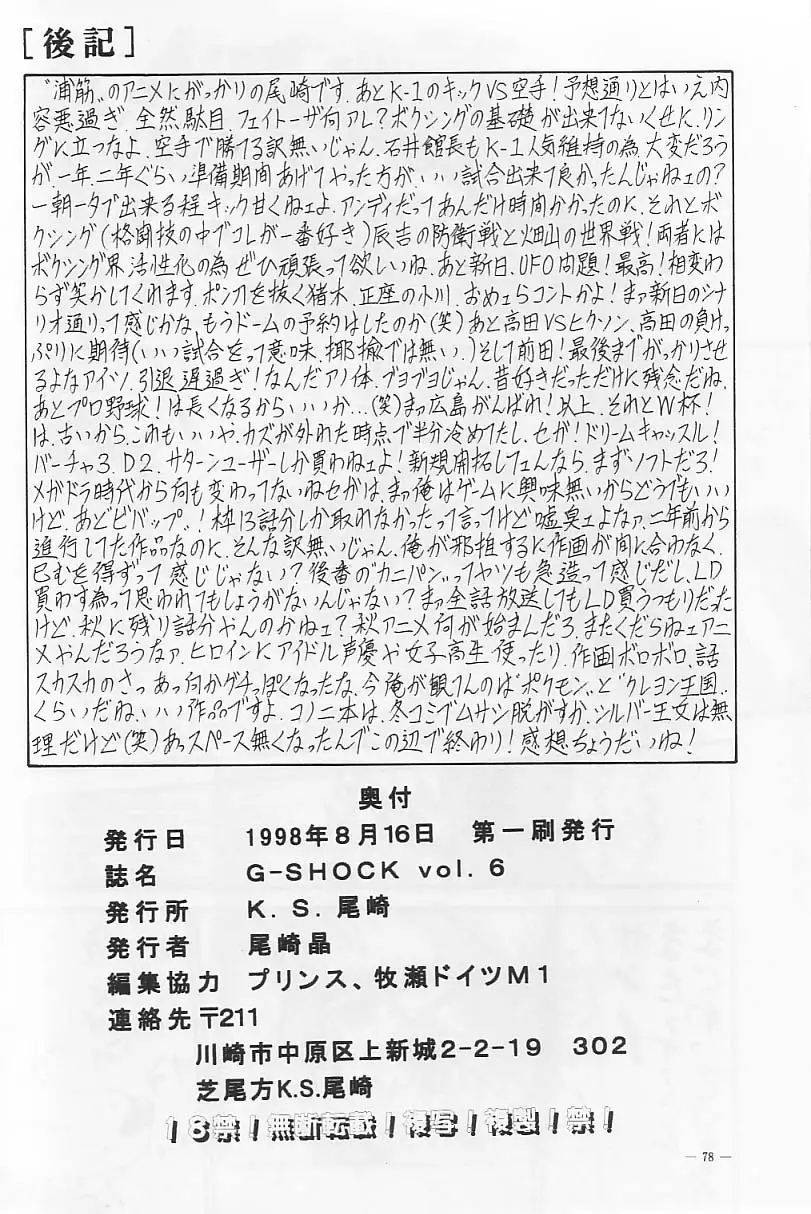 [後記]
"浦筋"のアニメにがっかりの尾崎です.あとK-1のキックVS空手!予想通りとはいえ内
容悪過ぎ.全然駄目.フェイトーザ何アレ?ボクシングの基礎が出来てないくせに.リン
グに立つなよ.空手で勝てる訳無いじゃん.石井館長もK-1人気維持の為.大変だろう
が.一年.二年ぐらい準備期間あげてやった方が.いい試合出来て良かったんじゃねェの?
一朝一夕で出来る程キック甘くねェよ.アンディだってあんだけ時間かかったのに.それとボ
クシング(格闘技の中でコレが一番好き)辰吉の防衛戦と畑山の世界戦!両者には
ボクシング界活性化の為ぜひ頑張って欲しいね.あと新日.UFO問題!最高!相変わ
らず笑かしてくれます.ポン刀を抜く猪木.正座の小川.おめェらコントかよ!まァ新日のシナ
リオ通りって感じかな.もうドームの予約はしたのか(笑)あと高田VSヒクソン.高田の負けっ
ぷりに期待(いい試合をって意味.揶揄では無い.)そして前田!最後までがっかりさせ
るよなアイツ.引退遅過ぎ!なんだアノ体.ブヨブヨじゃん.昔好きだっただけに残念だね.
あとプロ野球!は長くなるからいいか…(笑)まっ広島がんばれ!以上.それとW杯!
は.古いから.これもいいや.カズが外れた時点で半分冷めてたし.セガ!ドリームキャッスル!
バーチャ3.D2.サターンユーザーしか買わねェよ!新規開拓してェんなら.まずソフトだろ!
メガドラ時代から何も変わってないねセガは.まァ俺はゲームに興味無いからどうでもいい
けど.あとビバップ"!枠13話分しか取れなかったって言ってけど嘘臭ェよなァ.二年前から
進行してた作品なのに.そんな訳無いじゃん.俺が邪推するに作画が間に合わなく.
已むを得ずって感じじゃない?後番の"カニパン"ってヤツも急造って感じだし.LD
買わす為って思われてもしょうがないんじゃない?まァ全話放送してもLD買うつもりだった
けど.秋に残り話分やんのかねェ?秋アニメ何が始まんだろ.またくだらねェアニ
メやんだろうなァ.ヒロインにアイドル声優や女子高生使ったり.作画ボロボロ.話
スカスカのさっ.あっ何かグチっぽくなったな.今俺が観てんのは"ポケモン"と"クレヨン王国"
くらいだね.いい作品ですよ.コノ二本は.冬コミでムサシ脱がすか.シルバー王女は無
理だけど(笑)あっスペース無くなったんでこの辺で終わり!感想ちょうだいね!
奥付
発行日 1998年8月16日 第一刷発行
誌名 G-SHOCK vol.6
発行所 K.S.尾崎
発行者 尾崎晶
編集協力 プリンス、牧瀬ドイツM1
連絡先〒211
川崎市中原区上新城2-2-19 302
芝尾方K.S.尾崎
18禁!無断転載!複写!複製!禁!
— 78 —